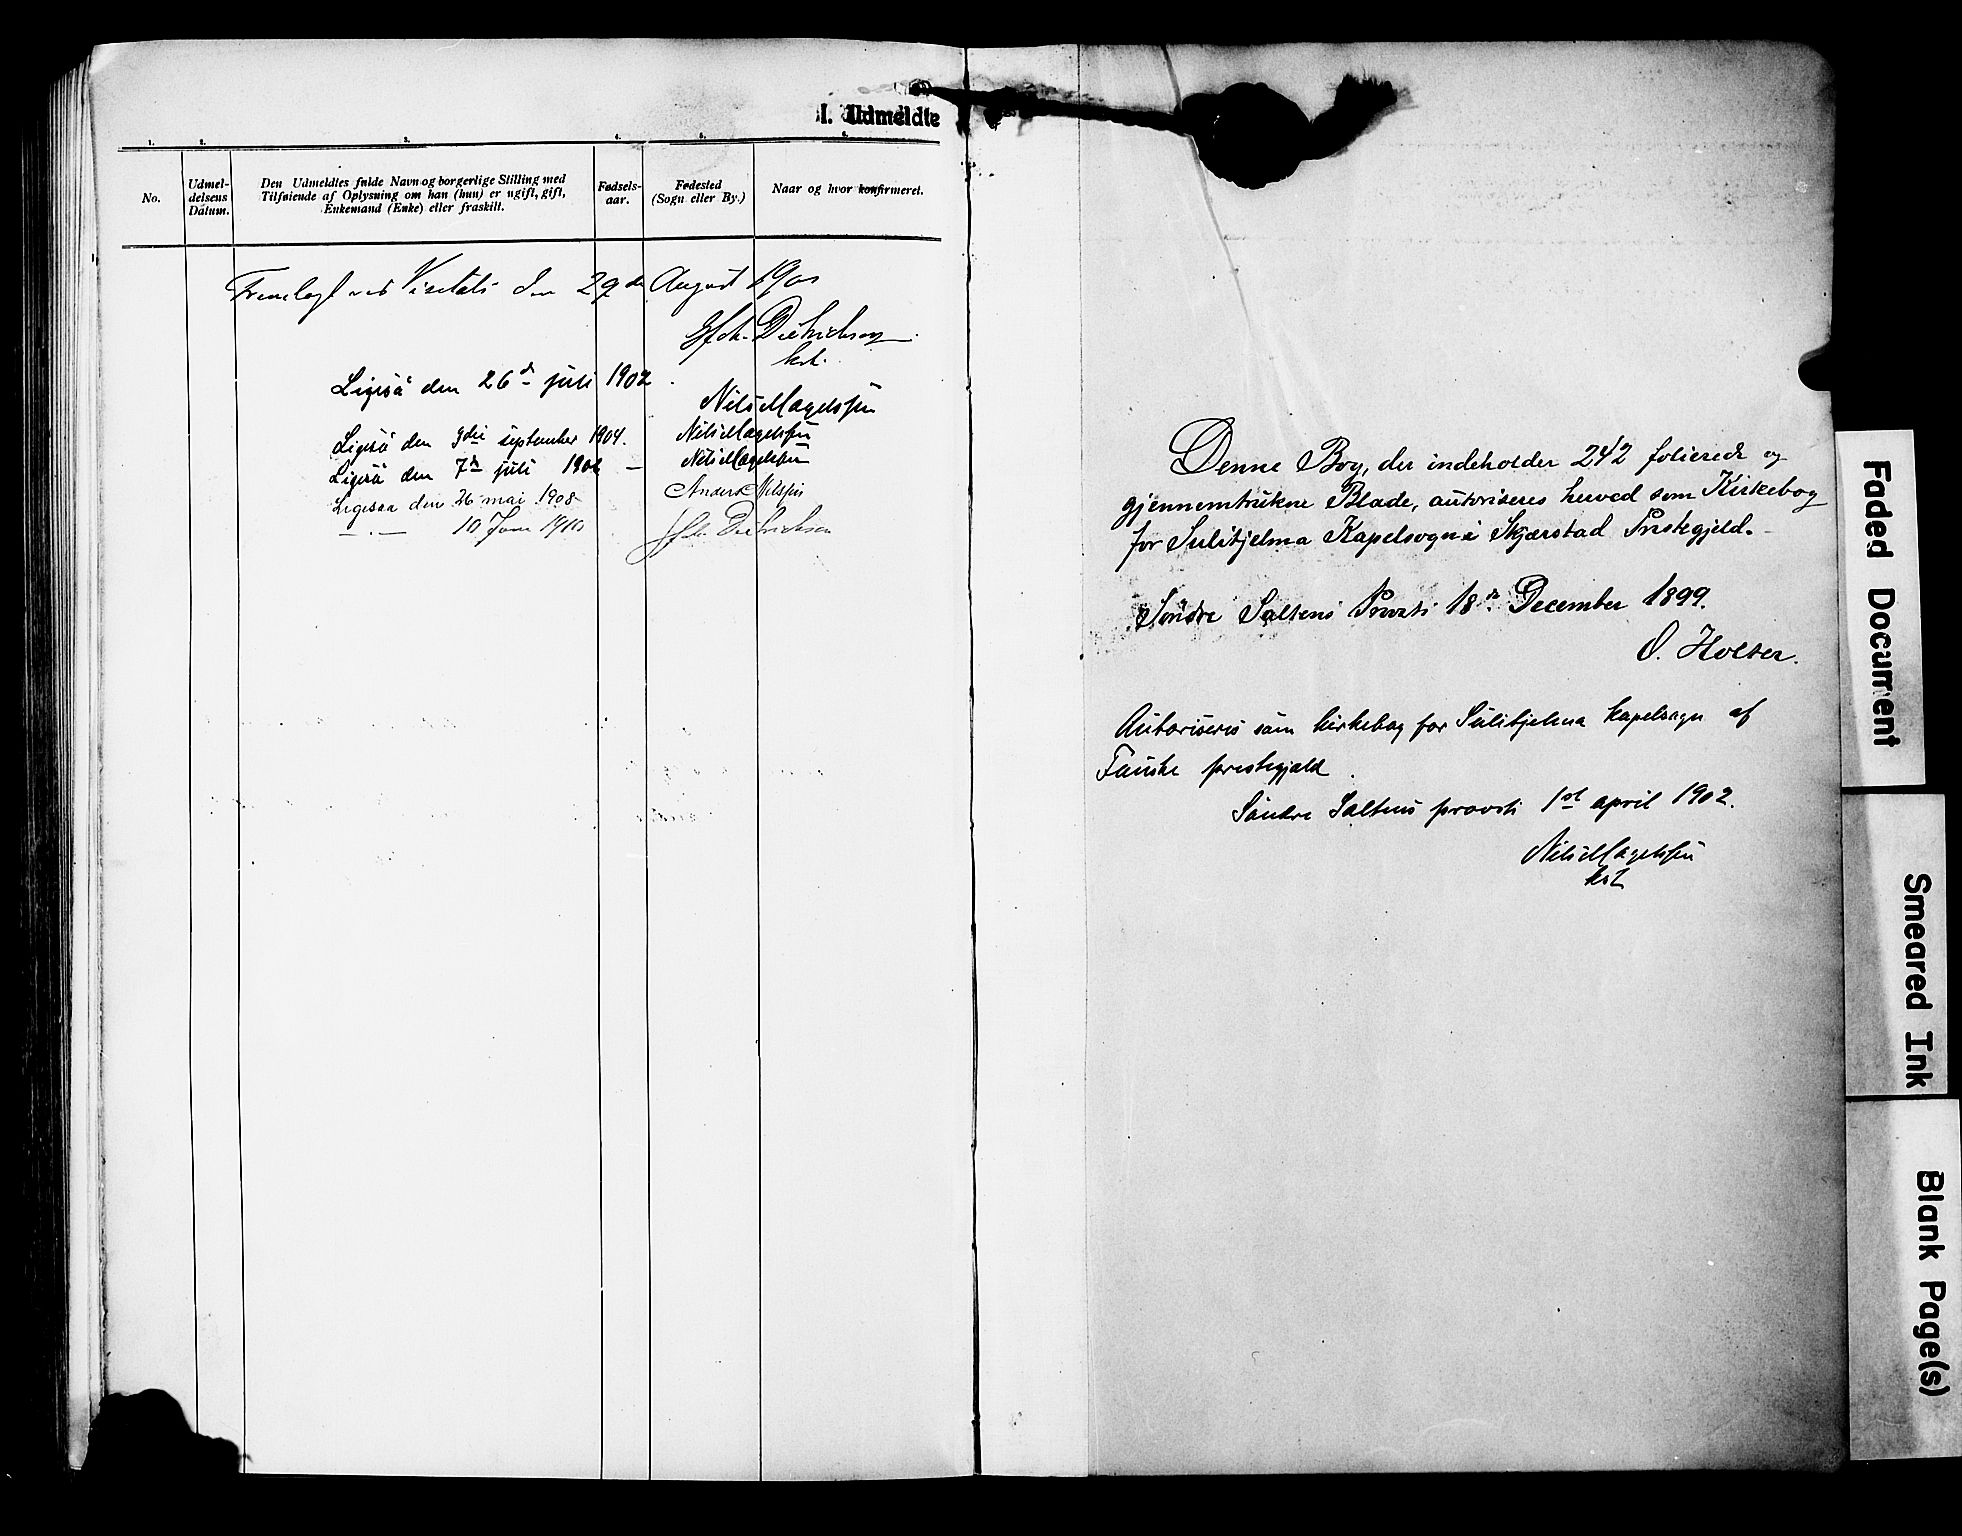 I. Udmeldte
1. 2. 3. 4. 5. 6.
No.
Udmel-
delsens
Datum.
Den Udmeldtes fulde Navn og borgerlige Stilling med
Tilføiende af Oplysning om han (hun) er ugift, gift,
Enkemand (Enke) eller fraskilt.
Fødsels-
aar.
Fødested
(Sogn eller By.)
Naar og hvor konfirmeret.
Fremlagt ved Visitats den 29de August 1901
Dietrichson
kst.
Ligeså den 26de juli 1902
Nils Magelssen
Ligeså den 3die september 1904. Nils Magelssen
Ligeså den 7de juli 1906 — Nils Magelssen
Ligesaa den 26 mai 1908 Anders Nilssen
— . — 10 Juni 1910 Dietrichson
Denne Bog, der indeholder 242 folierede og
gjennemtrukne Blade, autoriseres herved som Kirkebog
for Sulitjelma Kapelsogn i Skjærstad Prestegjeld. -
Søndre Saltens Provsti 18de December 1899.
O. Holter.
Autoriseres som kirkebog for Sulitjelma kapelsogn af
Fauske prestegjæld.
Søndre Saltens provsti 1st april 1902.
Nils Magelssen
kst
Faded Document
Smeared Ink
Blank Page(s)